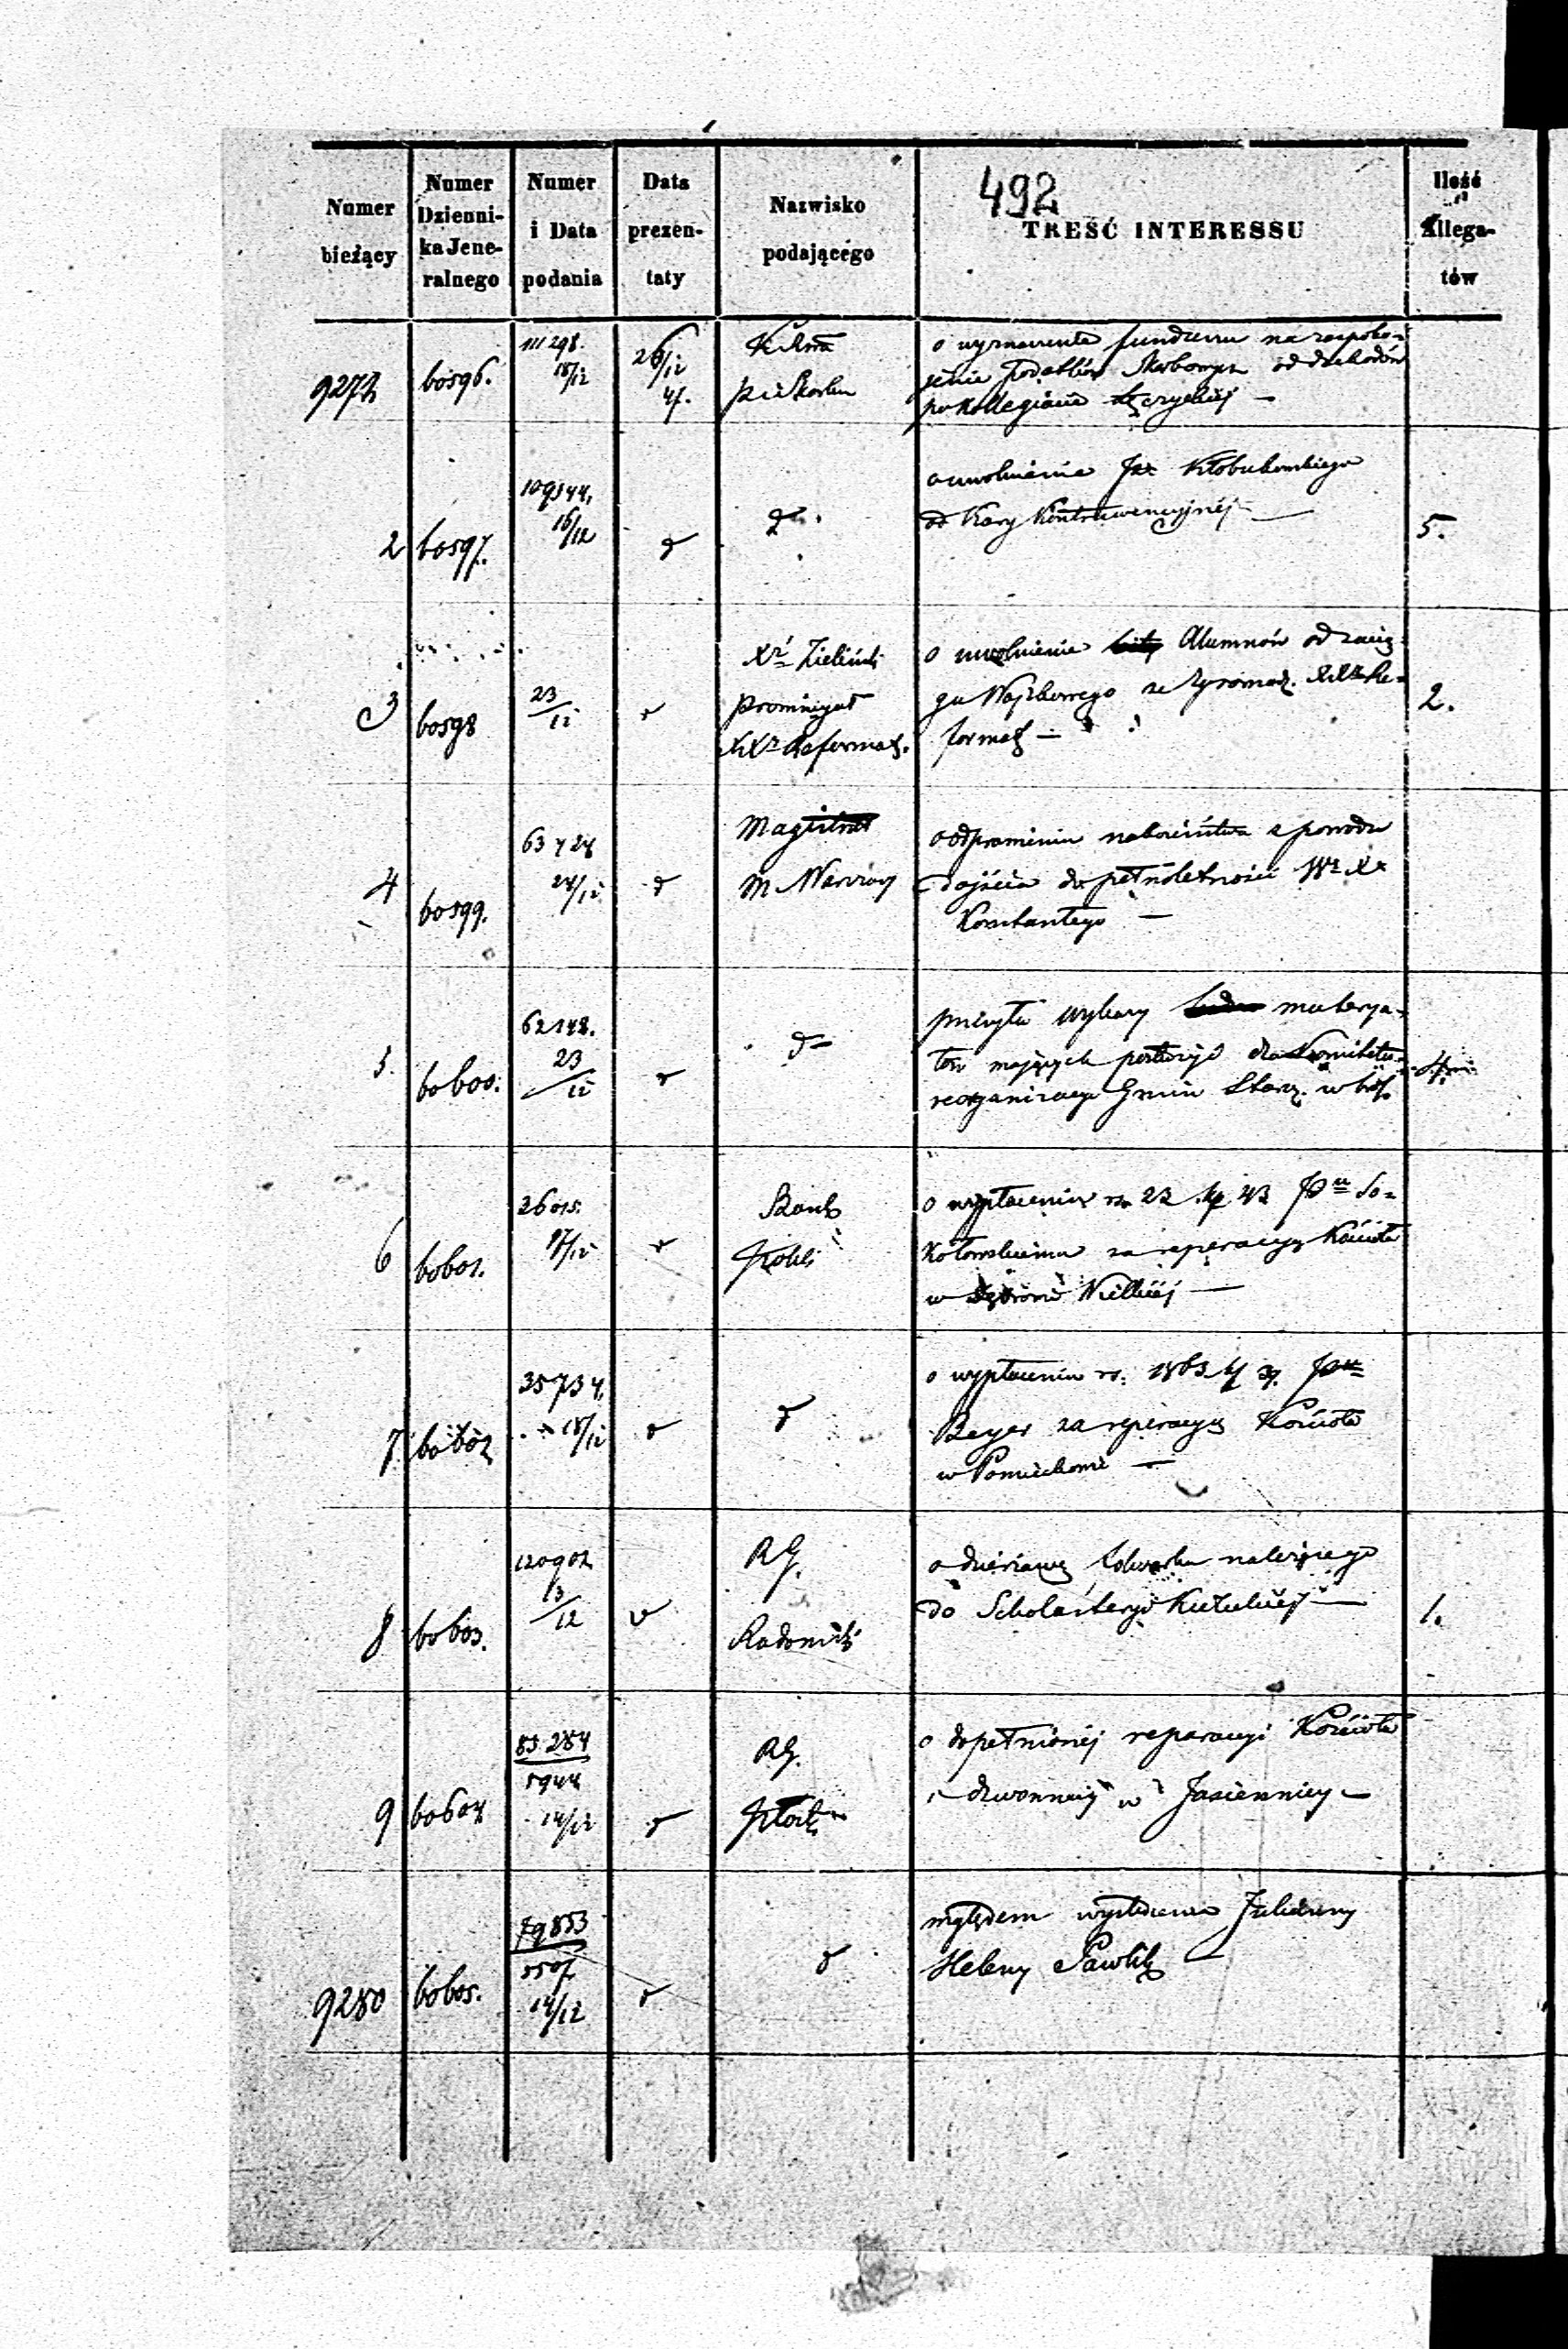 492
Numer bieżący
Numer Dzienni-ka Jene-ralnego
Numer i Data podania
Data prezen-taty
Nazwisko podającego
TREŚĆ INTERESSU
Ilość Allega-tów
60596.
111298.
18/12
26/12
47.
o wyznaczenie funduszu na zaspoko-
jenie Podatków Skarbowych od dochodów
po Kollegiacie Łęczyckiej —
2
60597.
16/12
d
d
o uwolnienie Kłobukowskiego
od Kary Kontrawencyjnéj —
5.
3
60598
23/12
d
Xdz Zieliński
Prowincyał
XXz Reformat.
o uwolnienie Alumnów od zacią-
gu Wojskowego ze Zgromadz. Re-
format —
2.
4
60599.
24/12
d
Magistrat
M Warszawy
o odprawieniu nabożeństwa z powodu
dojścia do pełnoletności Wo Xa
Konstantego —
5.
60600.
62148.
23/12
d
d
przesyła wykazy materya-
łów mających posłużyć dla Komitetu
reorganizacyi Gmin Staroz. w Król.
4.
6
60601.
26015.
17/12
d
Bank
Polski
o wypłaceniu rs. 22 k. 43 Panu So-
kołowskiemu za reperacyę Kościoła
w Wielkiéj —
7
60602
35734.
18/12
d
d
o wypłaceniu rs. 1863 k. Panu
Beyer za reperacyę Kościoła
w Pomiechowie —
8
60603.
120902
13/12
d
RG.
Radomski
o dzierżawę folwarku należącego
do Scholasteryi Kieleckiéj —
1.
9
60604
83284
5944
14/12
d
RG.
Płocki
o dopełnionéj reparacyi Kościoła
i dzwonnicy w Jasiennicy —
9280
60605.
79853
5507
14/12
d
d
względem wyśledzenia Julianny
Heleny Pawlik —